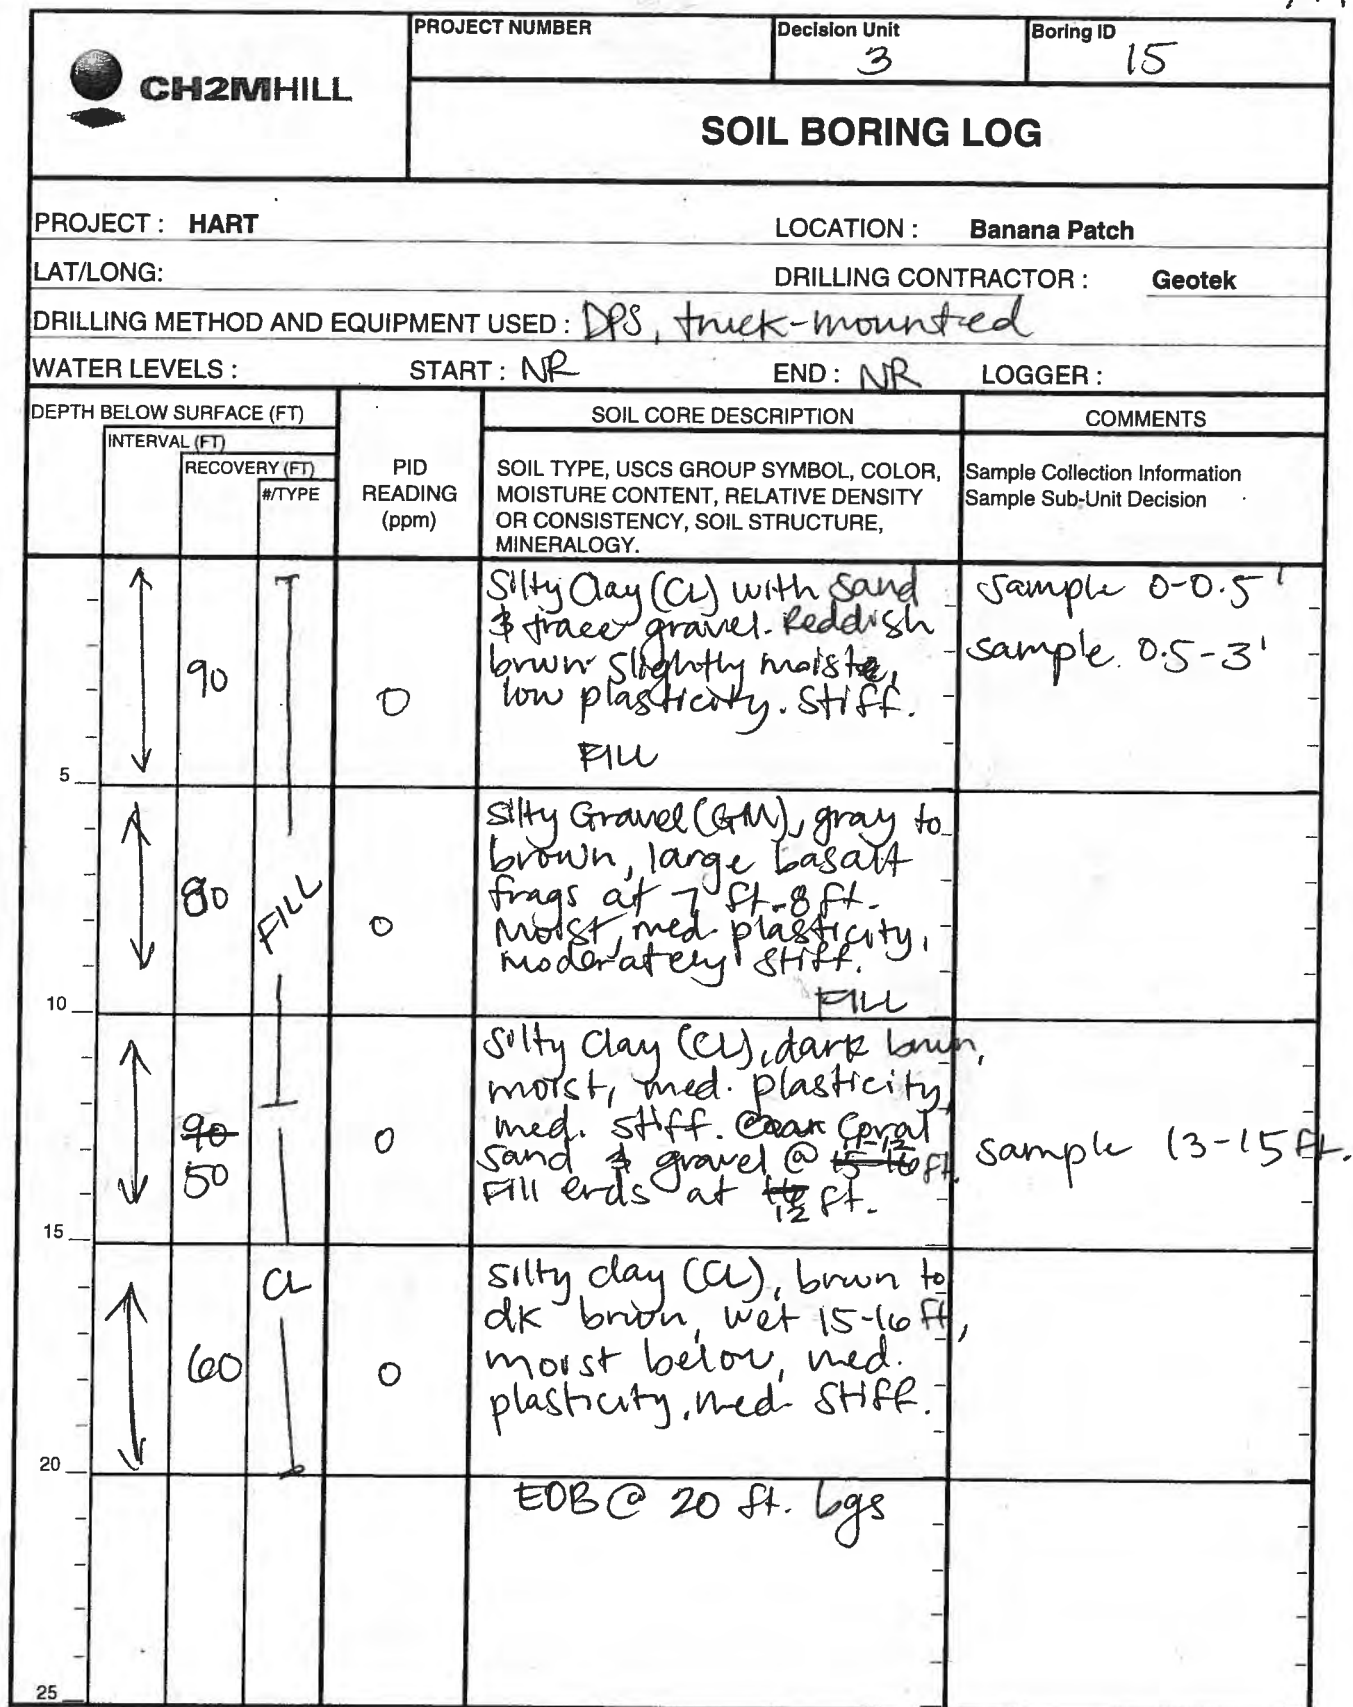 PROJECT NUMBER
Decision Unit
3
Boring ID
15
CH2MHILL
SOIL BORING LOG
PROJECT : HART
LOCATION : Banana Patch
LAT/LONG:
DRILLING CONTRACTOR : Geotek
DRILLING METHOD AND EQUIPMENT USED : DPS, truck-mounted
WATER LEVELS : START : NR END : NR LOGGER :
DEPTH BELOW SURFACE (FT)
INTERVAL (FT)
RECOVERY (FT)
#/TYPE
PID
READING
(ppm)
SOIL CORE DESCRIPTION
SOIL TYPE, USCS GROUP SYMBOL, COLOR,
MOISTURE CONTENT, RELATIVE DENSITY
OR CONSISTENCY, SOIL STRUCTURE,
MINERALOGY.
COMMENTS
Sample Collection Information
Sample Sub-Unit Decision
90
0
Silty Clay (CL) with sand
& trace gravel. Reddish
brown slightly moist,
low plasticity. Stiff.
FILL
sample 0-0.5'
sample 0.5-3'
5
80
FILL
0
Silty Gravel (GM), gray to
brown, large basalt
frags at 7 ft-8 ft.
Moist, med. plasticity,
moderately stiff.
FILL
10
90
50
0
Silty Clay (CL), dark brown,
moist, med. plasticity,
med. stiff. Coral
11-12
sand & gravel @ 15-16 ft.
Fill ends at 16 ft.
12
sample 13-15 ft.
15
CL
60
0
silty clay (CL), brown to
dk brown, wet 15-16 ft,
moist below, med.
plasticity, med. stiff.
20
EOB @ 20 ft. bgs
25